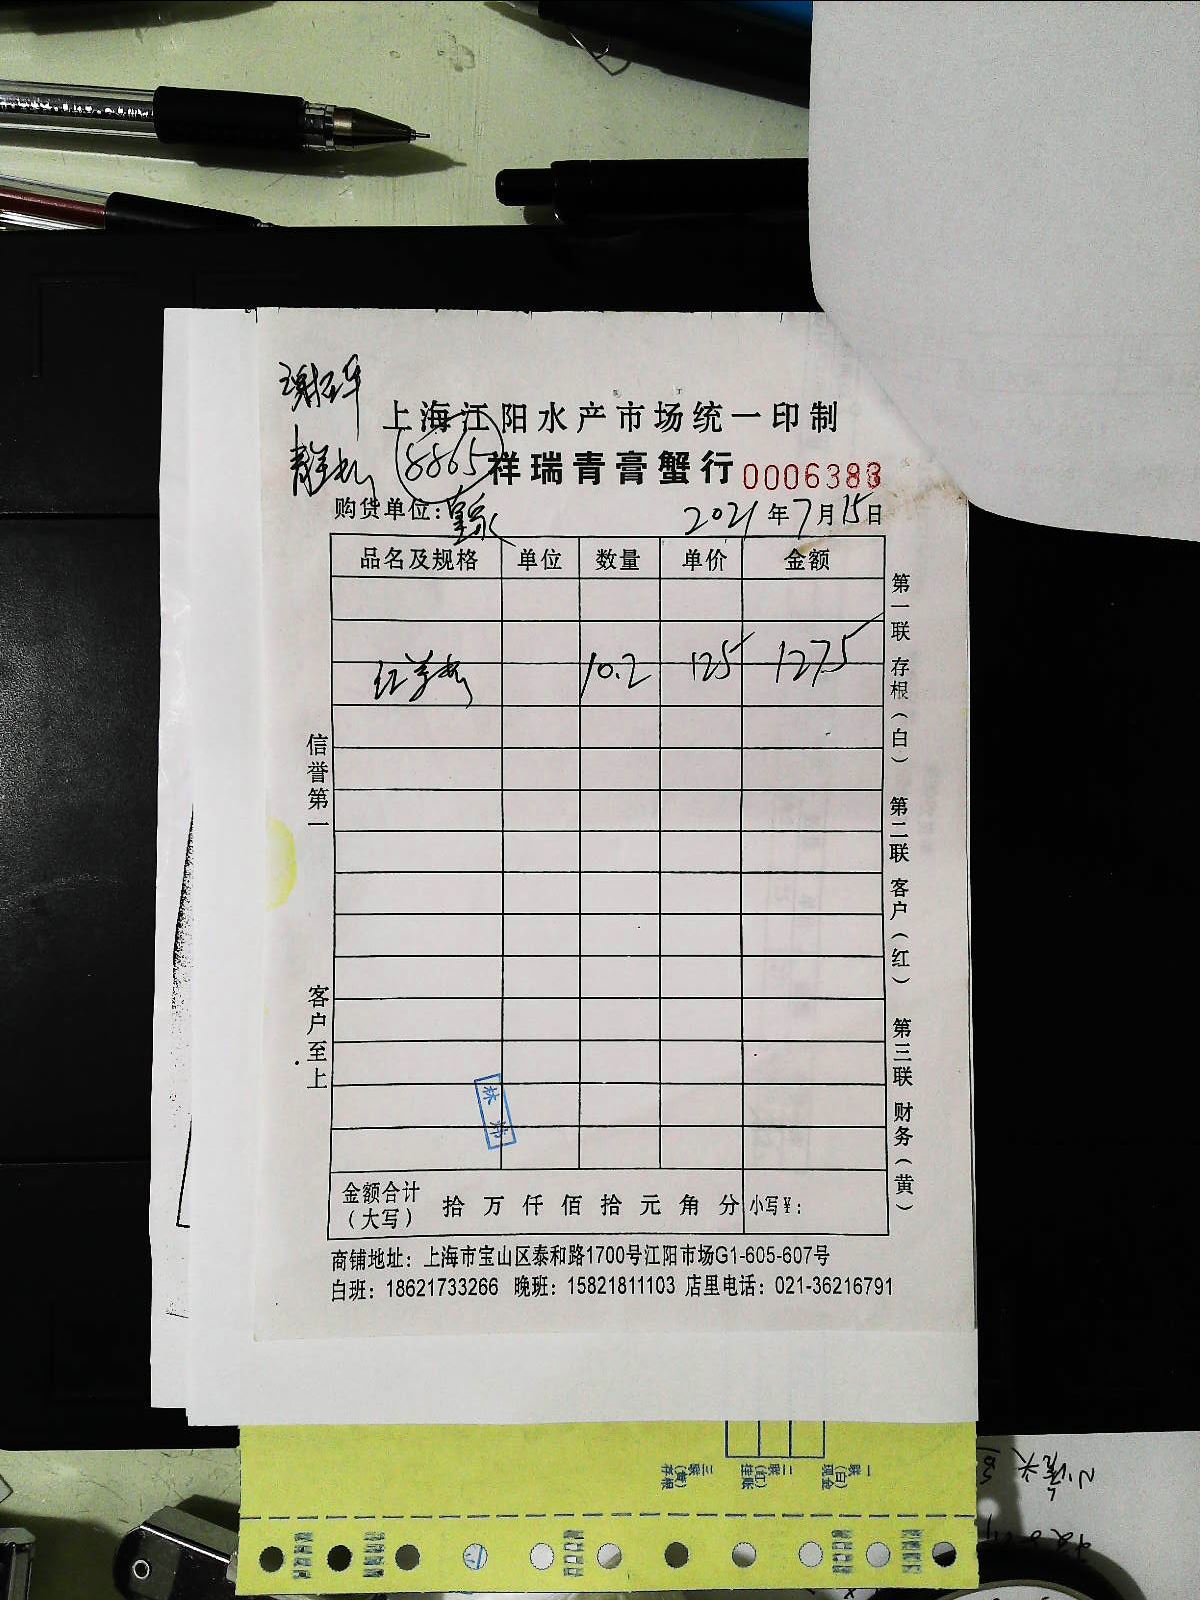 上海江阳水产市场统一印制
8865
祥瑞青膏蟹行 0006383
购货单位:
2021年7月15日
品名及规格 单位 数量 单价 金额
10.2 125 1275
信誉第一
客户至上
第一联 存根(白) 第二联 客户(红) 第三联 财务(黄)
林
金额合计(大写) 拾 万 仟 佰 拾 元 角 分 小写¥:
商铺地址: 上海市宝山区泰和路1700号江阳市场G1-605-607号
白班: 18621733266 晚班: 15821811103 店里电话: 021-36216791
一联(白)现金
二联(红)挂账
三联(黄)存根